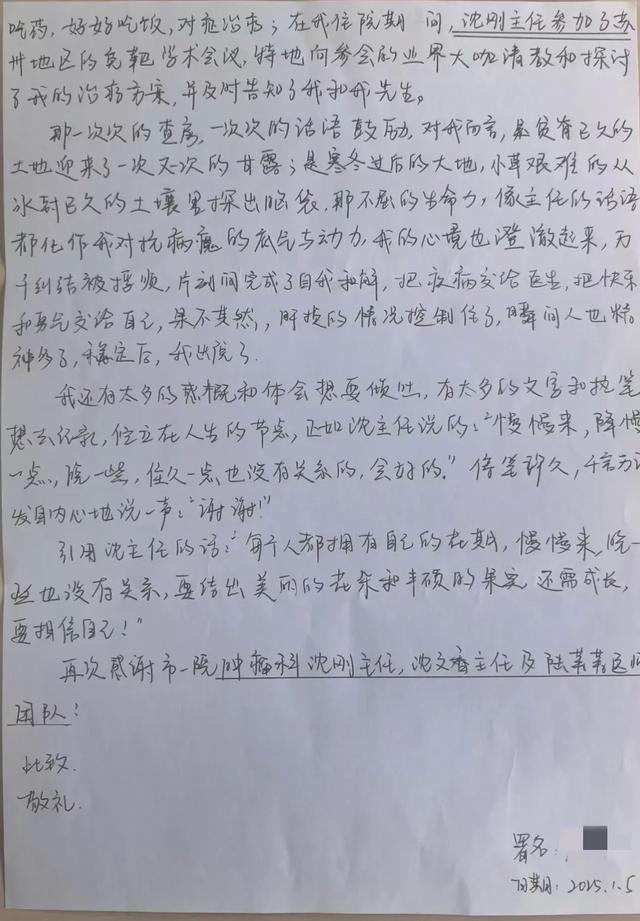 吃药，好好吃饭，对症治疗；在我住院期间，沈刚主任参加了苏
州地区的免靶学术会议，特地向参会的业界大咖请教和探讨
了我的治疗方案，并及时告知了我和我先生。
那一次次的查房，一次次的话语鼓励，对我而言，是贫瘠已久的
土地迎来了一次又一次的甘露；是寒冬过后的大地，小草艰难的从
冰封已久的土壤里探出脑袋，那不屈的生命力，像主任的话语
都化作我对抗病魔的底气与动力，我的心境也澄澈起来，万
千纠结被捋顺，片刻间完成了自我和解，把疾病交给医生，把快乐
和勇气交给自己，果不其然，肝损的情况控制住了，瞬间人也精
神多了，稳定后，我出院了.
我还有太多的感概和体会想要倾吐，有太多的文字和执笔
想去纪录，伫立在人生的节点，正如沈主任说的："慢慢来，降慢
一点，晚一些，住久一点也没有关系的，会好的." 停笔许久，千言万语
发自内心地说一声："谢谢!"
引用沈主任的话："每个人都拥有自己的花期，慢慢来，晚一
些也没有关系，要结出美丽的花朵和丰硕的果实 还需成长，
要相信自己！"
再次感谢市一院肿瘤科沈刚主任，沈文香主任及陆苇苇医师
团队！
此致
敬礼.
署名：
日期：2025.1.5